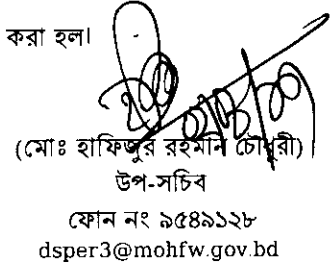 করা হল।
(মোঃ হাফিজুর রহমান চৌধুরী)
উপ-সচিব
ফোন নং ৯৫৪৯১২৮
dsper3@mohfw.gov.bd